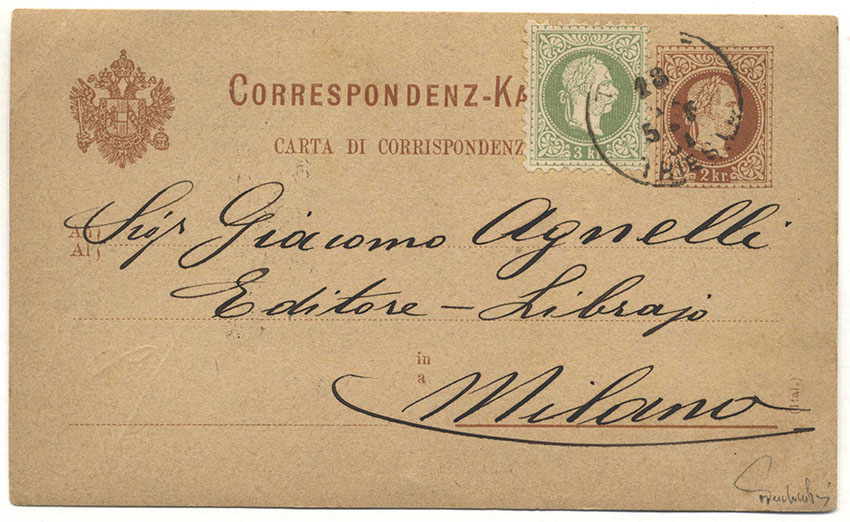 CORRESPONDENZ-KA
CARTA DI CORRISPONDENZ
3 kr.
2 kr.
18
5
TRIEST
An)
Al)
Sigr Giacomo Agnelli
Editore-Librajo
in
a
Milano
(Ital.)